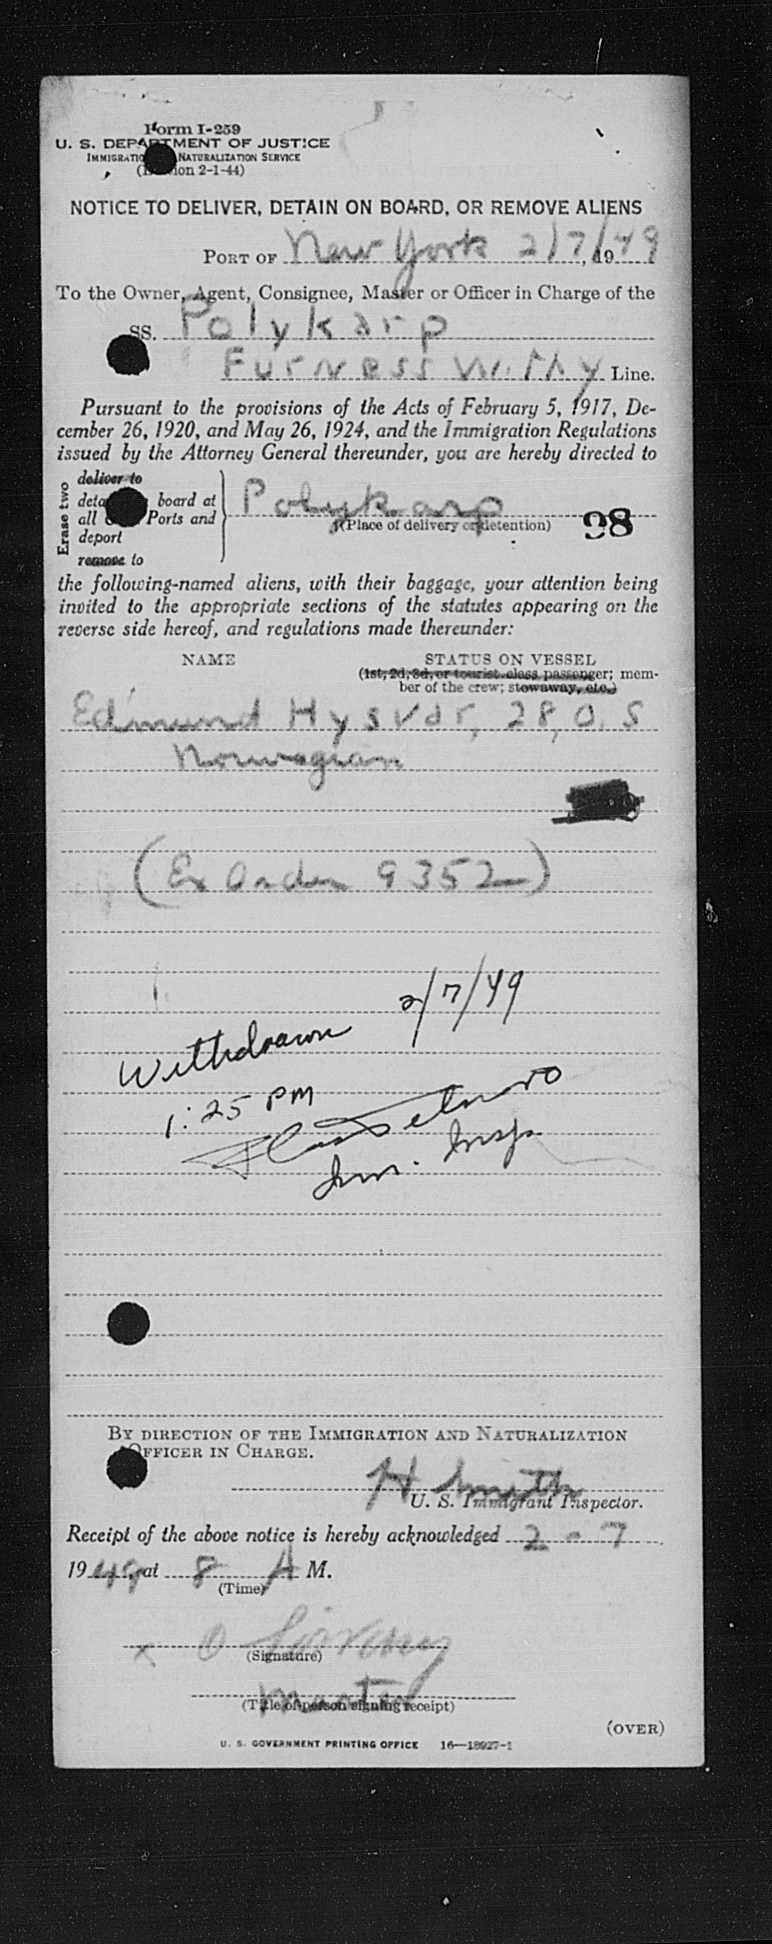 Form I-259
U. S. DEPARTMENT OF JUSTICE
IMMIGRATION NATURALIZATION SERVICE
( ion 2-1-44)
NOTICE TO DELIVER, DETAIN ON BOARD, OR REMOVE ALIENS
PORT OF New York 2/7/, 1949
To the Owner, Agent, Consignee, Master or Officer in Charge of the
SS. Polykarp
Furness Withy Line.
Pursuant to the provisions of the Acts of February 5, 1917, De-
cember 26, 1920, and May 26, 1924, and the Immigration Regulations
issued by the Attorney General thereunder, you are hereby directed to
Erase two
deliver to
deta board at
all Ports and
deport
remove to
Polykarp
(Place of delivery or detention)
98
the following-named aliens, with their baggage, your attention being
invited to the appropriate sections of the statutes appearing on the
reverse side hereof, and regulations made thereunder:
NAME STATUS ON VESSEL
(1st, 2d, 3d, or tourist-class passenger; mem-
ber of the crew; stowaway, etc.)
Edmund Hysvar, 28, O.S
Norwegian
(Ex Order 9352)
2/7/49
Withdrawn
1:25 PM
Imm. Insp.
BY DIRECTION OF THE IMMIGRATION AND NATURALIZATION
OFFICER IN CHARGE.
H Smith
U. S. Immigrant Inspector.
Receipt of the above notice is hereby acknowledged 2-7
1949, at 8 A M.
(Time)
x O
(Signature)
Master
(Title of person signing receipt)
(OVER)
U. S. GOVERNMENT PRINTING OFFICE 16—18927-1